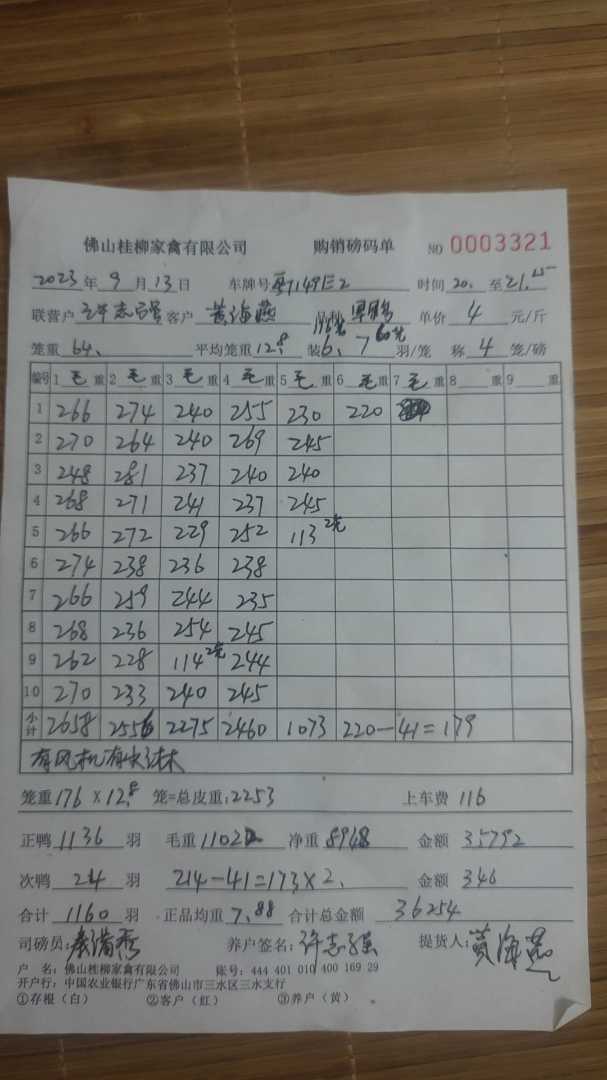 佛山桂柳家禽有限公司 购销磅码单 NO 0003321
2023年9月13日 车牌号 至 21.
联营户 许志强 客户 黄海燕 品种 单价 4 元/斤
笼重 64. 平均笼重 12.8 装 6、7 羽/笼 称 4 笼/磅
编号 1 毛重 2 毛重 3 毛重 4 毛重 5 毛重 6 毛重 7 毛重 8 重 9 重
1 266 274 240 255 230 220
2 270 264 240 269 245
3 248 281 237 240 240
4 268 271 241 237 245
5 266 272 229 252 113 2笼
6 274 238 236 238
7 266 259 244 235
8 268 236 254 245
9 262 228 114 2笼 244
10 270 233 240 245
小计 2658 2556 2275 2460 1073 220-41=179
有风机有
笼重 176×12.8 笼=总皮重:2253 上车费 116
正鸭 1136 羽 毛重 净重 8948 金额 35792
次鸭 24 羽 214-41=173×2. 金额 346
合计 1160 羽 正品均重 7.88 合计总金额 36254
司磅员: 养户签名: 许志强 提货人: 黄海燕
户 名: 佛山桂柳家禽有限公司 账号: 444 401 010 400 169 29
开户行: 中国农业银行广东省佛山市三水区三水支行
①存根(白) ②客户(红) ③养户(黄)